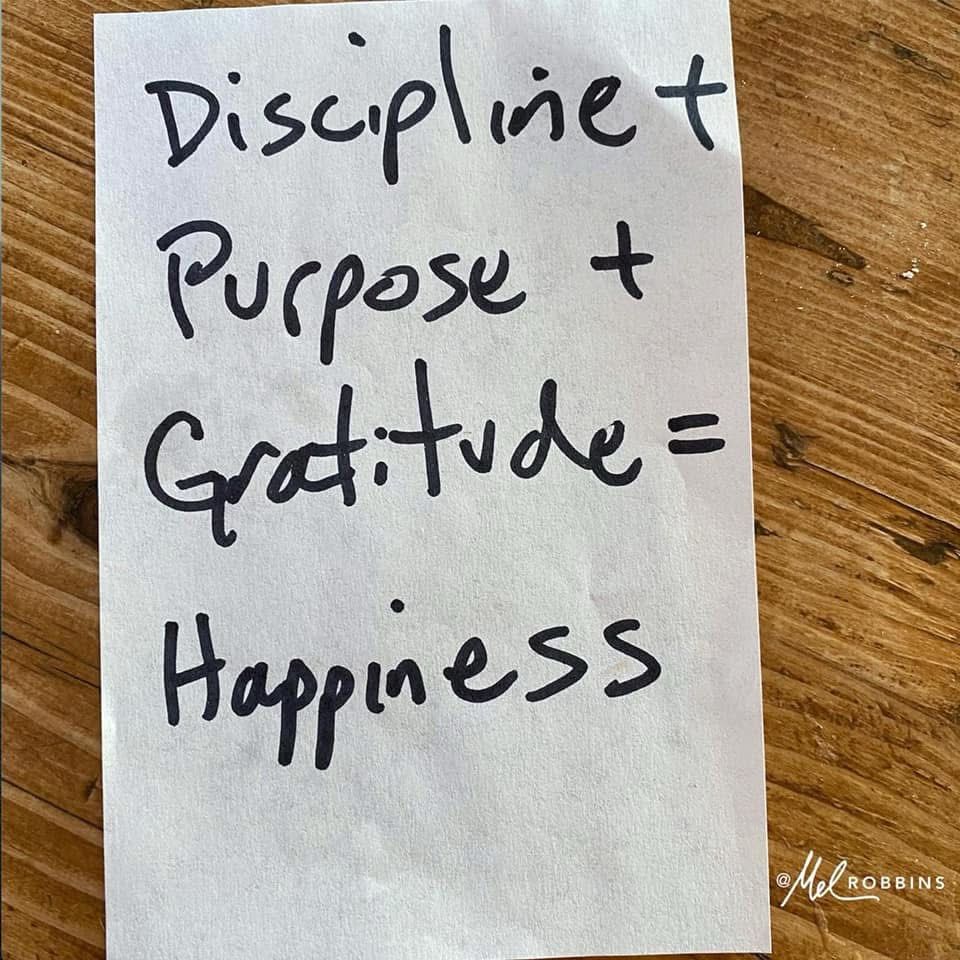 Discipline +
Purpose +
Gratitude =
Happiness
@Mel ROBBINS